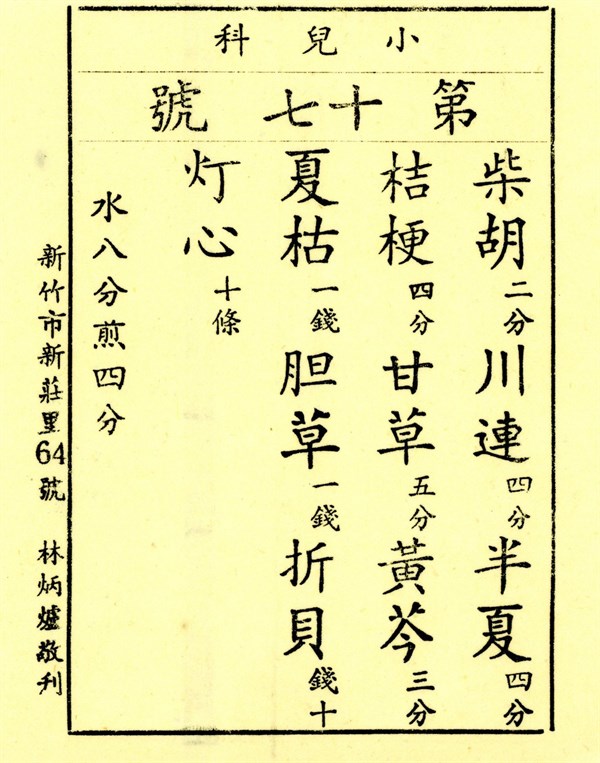 小兒科
第十七號
柴胡二分川連四分半夏四分
桔梗四分甘草五分黃芩三分
夏枯一錢胆草一錢折貝錢十
灯心十條
水八分煎四分
新竹市新莊里64號 林炳爐敬刋